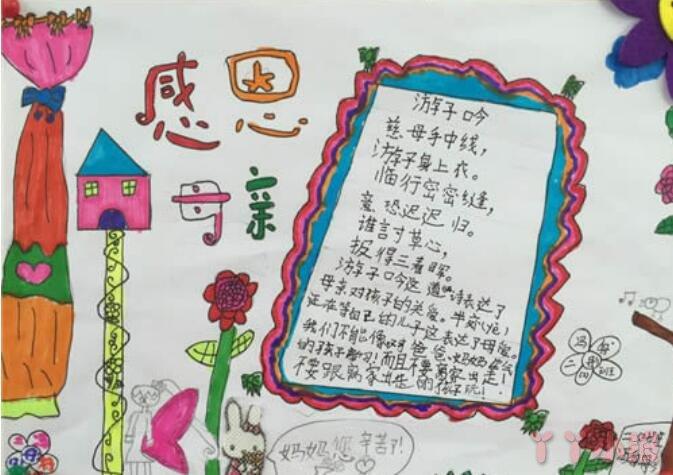 感恩
母亲
游子吟
慈母手中线，
游子身上衣。
临行密密缝，
意恐迟迟归。
谁言寸草心，
报得三春晖。
游子吟这道诗表达了
母亲对孩子的关爱。半夜了，
还在等自己的儿子这表达了母爱。
我们不能像 爸爸妈妈
的孩子学习！而且不要离家出走！
不要跟离家出走的孩子玩！
妈妈您辛苦了！
丫丫小粥